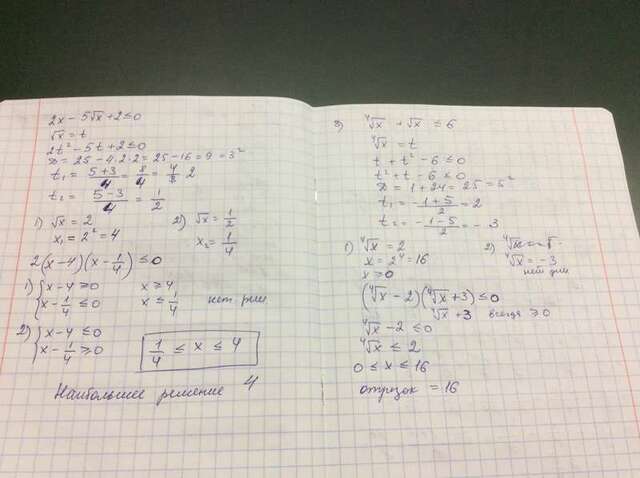 2x - 5√x + 2 ≤ 0
√x = t
2t² - 5t + 2 ≤ 0
D = 25 - 4·2·2 = 25 - 16 = 9 = 3²
t₁ = (5+3)/4 = 8/4 = 2
t₂ = (5-3)/4 = 1/2
1) √x = 2 2) √x = 1/2
x₁ = 2² = 4 x₂ = 1/4
2(x-4)(x - 1/4) ≤ 0
1) { x - 4 ≥ 0 x ≥ 4
{ x - 1/4 ≤ 0 x ≤ 1/4 нет реш
2) { x - 4 ≤ 0
{ x - 1/4 ≥ 0 1/4 ≤ x ≤ 4
Наибольшее решение 4
3) ⁴√x + √x ≤ 6
⁴√x = t
t + t² - 6 ≤ 0
t² + t - 6 ≤ 0
D = 1 + 24 = 25 = 5²
t₁ = (-1+5)/2 = 2
t₂ = (-1-5)/2 = -3
1) ⁴√x = 2 2)
x = 2⁴ = 16 ⁴√x = -3
x ≥ 0 нет реш
(⁴√x - 2)(⁴√x + 3) ≤ 0
⁴√x + 3 всегда ≥ 0
⁴√x - 2 ≤ 0
⁴√x ≤ 2
0 ≤ x ≤ 16
отрезок = 16